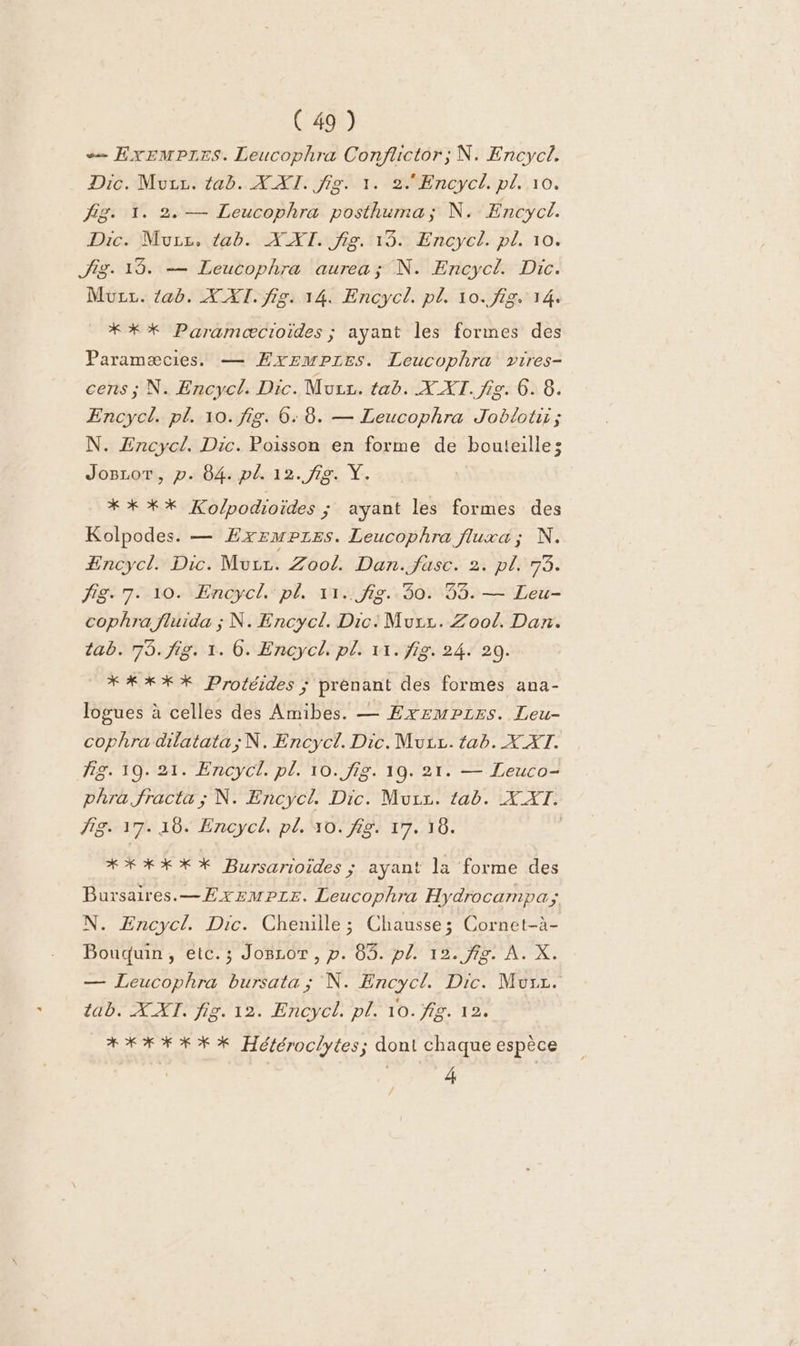 ( 49 )
— EXEMPLES. Leucophra Conflictor; N. Encycl.
Dic. MULL. tab. XXI. fig. 1. 2. Encycl. pl. 10.
fig. 1. 2. — Leucophra posthuma; N. Encycl.
Dic. MULL. tab. XXI. fig. 13. Encycl. pl. 10.
fig. 13. — Leucophra aurea; N. Encycl. Dic.
MULL. tab. XXI. fig. 14. Encycl. pl. 10. fig. 14.
*** Paramœcioïdes; ayant les formes des
Paramæcies. — EXEMPLES. Leucophra vires-
cens; N. Encycl. Dic. MULL. tab. XXI. fig. 6. 8.
Encycl. pl. 10. fig. 6. 8. — Leucophra Joblotii;
N. Encycl. Dic. Poisson en forme de bouteille;
JOBLOT, p. 84. pl. 12. fig. Y.
**** Kolpodioïdes; ayant les formes des
Kolpodes. — EXEMPLES. Leucophra fluxa; N.
Encycl. Dic. MULL. Zool. Dan. fasc. 2. pl. 73.
fig. 7. 10. Encycl. pl. 11. fig. 30. 33. — Leu-
cophra fluida; N. Encycl. Dic. MULL. Zool. Dan.
tab. 73. fig. 1. 6. Encycl. pl. 11. fig. 24. 29.
***** Protéides; prenant des formes ana-
logues à celles des Amibes. — EXEMPLES. Leu-
cophra dilatata; N. Encycl. Dic. MULL. tab. XXI.
fig. 19. 21. Encycl. pl. 10. fig. 19. 21. — Leuco-
phra fracta; N. Encycl. Dic. MULL. tab. XXI.
fig. 17. 18. Encycl. pl. 10. fig. 17. 18.
****** Bursarioïdes; ayant la forme des
Bursaires. — EXEMPLE. Leucophra Hydrocampa;
N. Encycl. Dic. Chenille; Chausse; Cornet-à-
Bouquin, etc.; JOBLOT, p. 83. pl. 12. fig. A. X.
— Leucophra bursata; N. Encycl. Dic. MULL.
tab. XXI. fig. 12. Encycl. pl. 10. fig. 12.
******* Hétéroclytes; dont chaque espèce
4